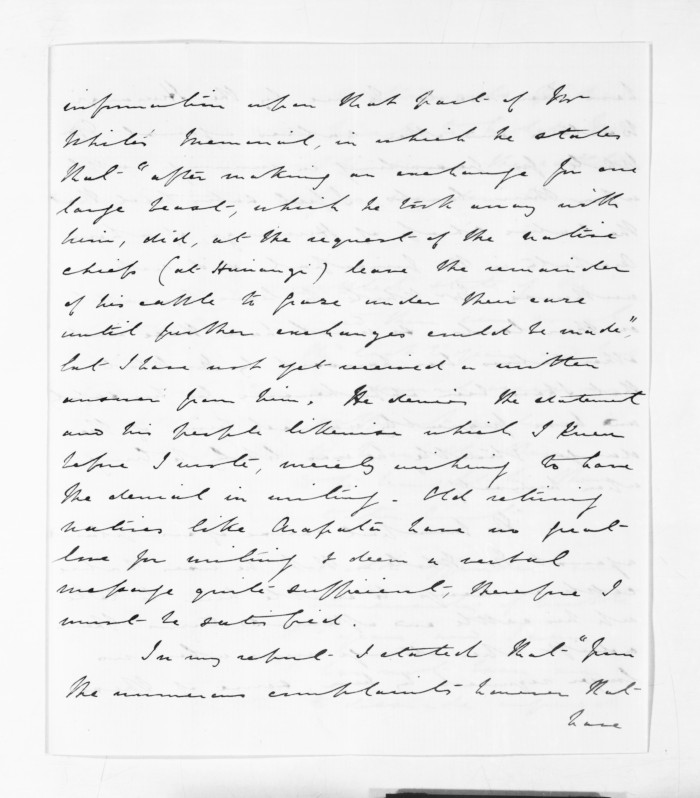 information upon that part of Mr
White's Memorial, in which he states
that "after making an exchange for one
large beast, which he took away with
him, did, at the request of the native
chiefs (at Hinangi) leave the remainder
of his cattle to graze under their care
until further exchanges could be made",
but I have not yet received a written
answer from him. He denies the statement
and his people likewise which I knew
before I wrote, merely wishing to have
the denial in writing. Old
natives like Arapata have no great
love for writing & deem a verbal
message quite sufficient, therefore I
must be satisfied.
In my report I stated that "from
the numerous complaints however that
have